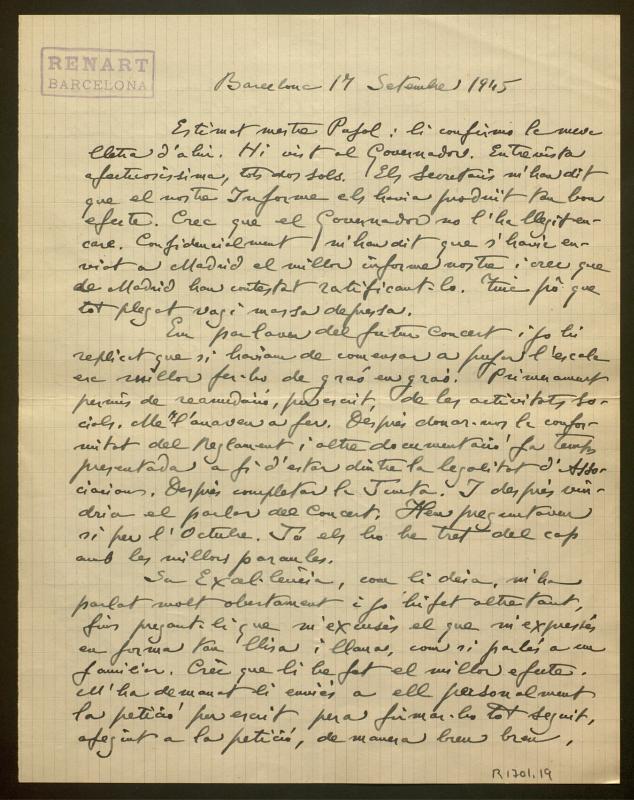 RENART
BARCELONA
Barcelona 17 Setembre 1945
Estimat mestre Pujol: li confirmo la meva
lletra d'ahir. Hi vist al Governador. Entrevista
afectuosíssima, tots dos sols. Els secretaris m'han dit
que el nostre Informe els havia produit tan bon
efecte. Crec que el Governador no l'ha llegit en-
care. Confidencialment m'han dit que s'havia en-
viat a Madrid el millor informe nostre i crec que
de Madrid han contestat ratificant-lo. Tinc pò que
tot plegat vagi massa depressa.
Em parlaven del futur Concert i jo li
replicat que si haviam de comensar a pujar l'escala
era millor fer-ho de graó en graó. Primerament
permís de reanudació, per escrit, de les activitats so-
cials. Me l'anaven a fer. Després donar-nos la confor-
mitat del Reglament i altre documentació ja temps
presentada a fi d'estar dintre la legalitat d'Asso-
ciacions. Després completar la Junta. I després vin-
dria el parlar del Concert. Hem preguntaven
si per l'Octubre. Jo els ho he tret del cap
amb les millors paraules.
Sa Excel·lència, com li deia, m'ha
parlat molt obertament i jo hi fet altre tant,
fins pregant-li que m'excusés el que m'expressés
en forma tan llisa i llana, com si parlés a un
familiar. Crec que li he fet el millor efecte.
M'ha demanat li enviés a ell personalment
la petició per escrit pera firmar-ho tot seguit,
afegint a la petició, de manera breu breu,
R 1701.19